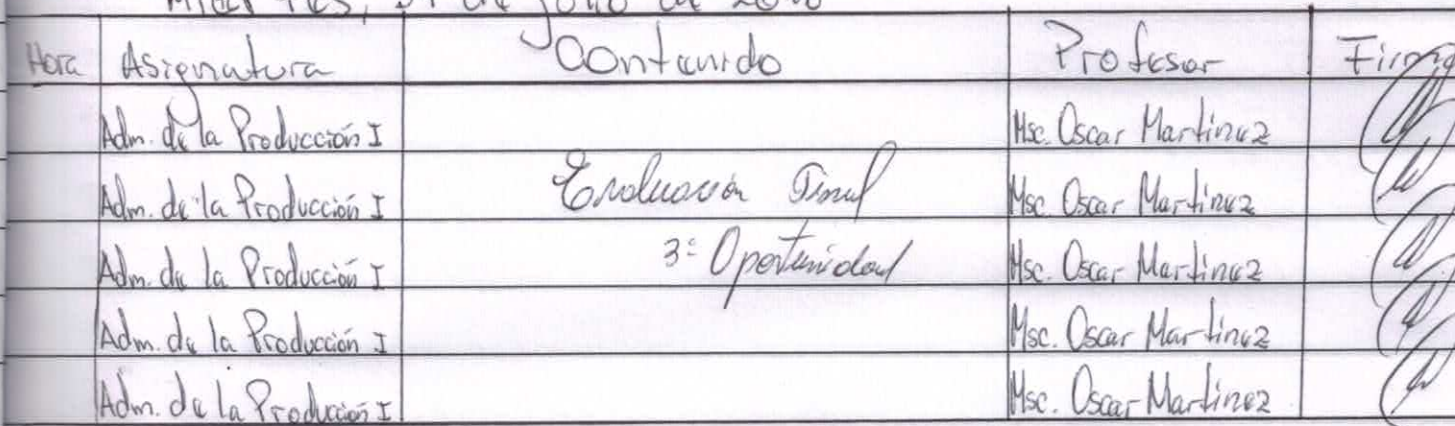 Hora Asignatura Contenido Profesor Firma
Adm. de la Producción I Msc. Oscar Martinez
Adm. de la Producción I Evaluación Final Msc. Oscar Martinez
Adm. de la Producción I 3ª Oportunidad Msc. Oscar Martinez
Adm. de la Producción I Msc. Oscar Martinez
Adm. de la Producción I Msc. Oscar Martinez